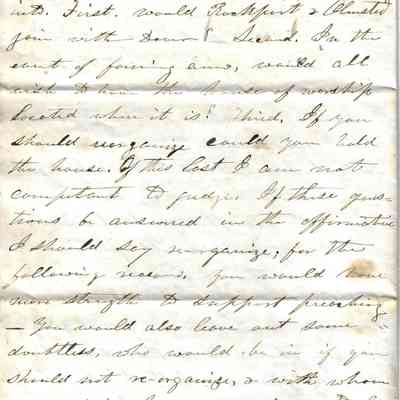 into. First. would Rockport & Olmsted
join with Dover? Second. In the
event of forming anew, would all
wish to have the house of worship
located where it is? Third. If you
should reorganize could you hold
the house. Of this last I am not
competant to judge. If these ques-
tions be answered in the affirmative
I should say reorganize, for the
following reasons. You would have
more strength to support preaching
- You would also leave out some
doubtless, who would be in if you
should not re-organize, & with whom